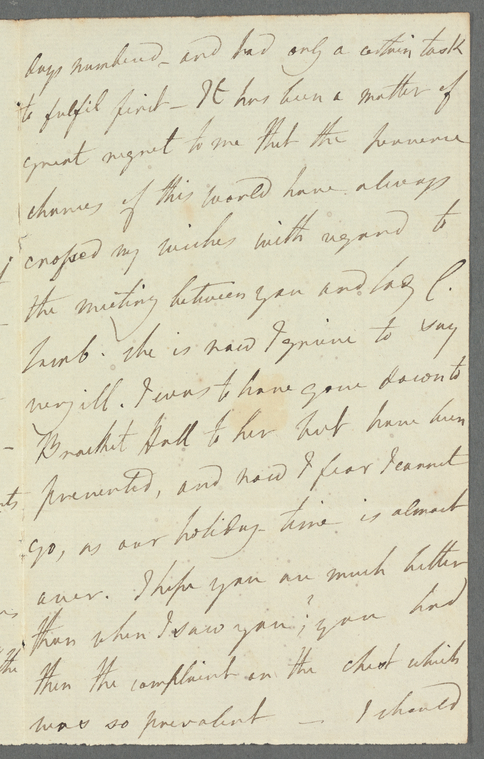 days numbered - and had only a certain task
to fulfil first - It has been a matter of
great regret to me that the perverse
chances of this world have always
crossed my wishes with regard to
the meeting between you and Lady C.
Lamb. She is now I grieve to say
very ill. I was to have gone down to
Brocket Hall to her but have been
prevented, and now I fear I cannot
go, as our holiday time is almost
over. I hope you are much better
than when I saw you; you had
then the complaint on the chest which
was so prevalent — I should